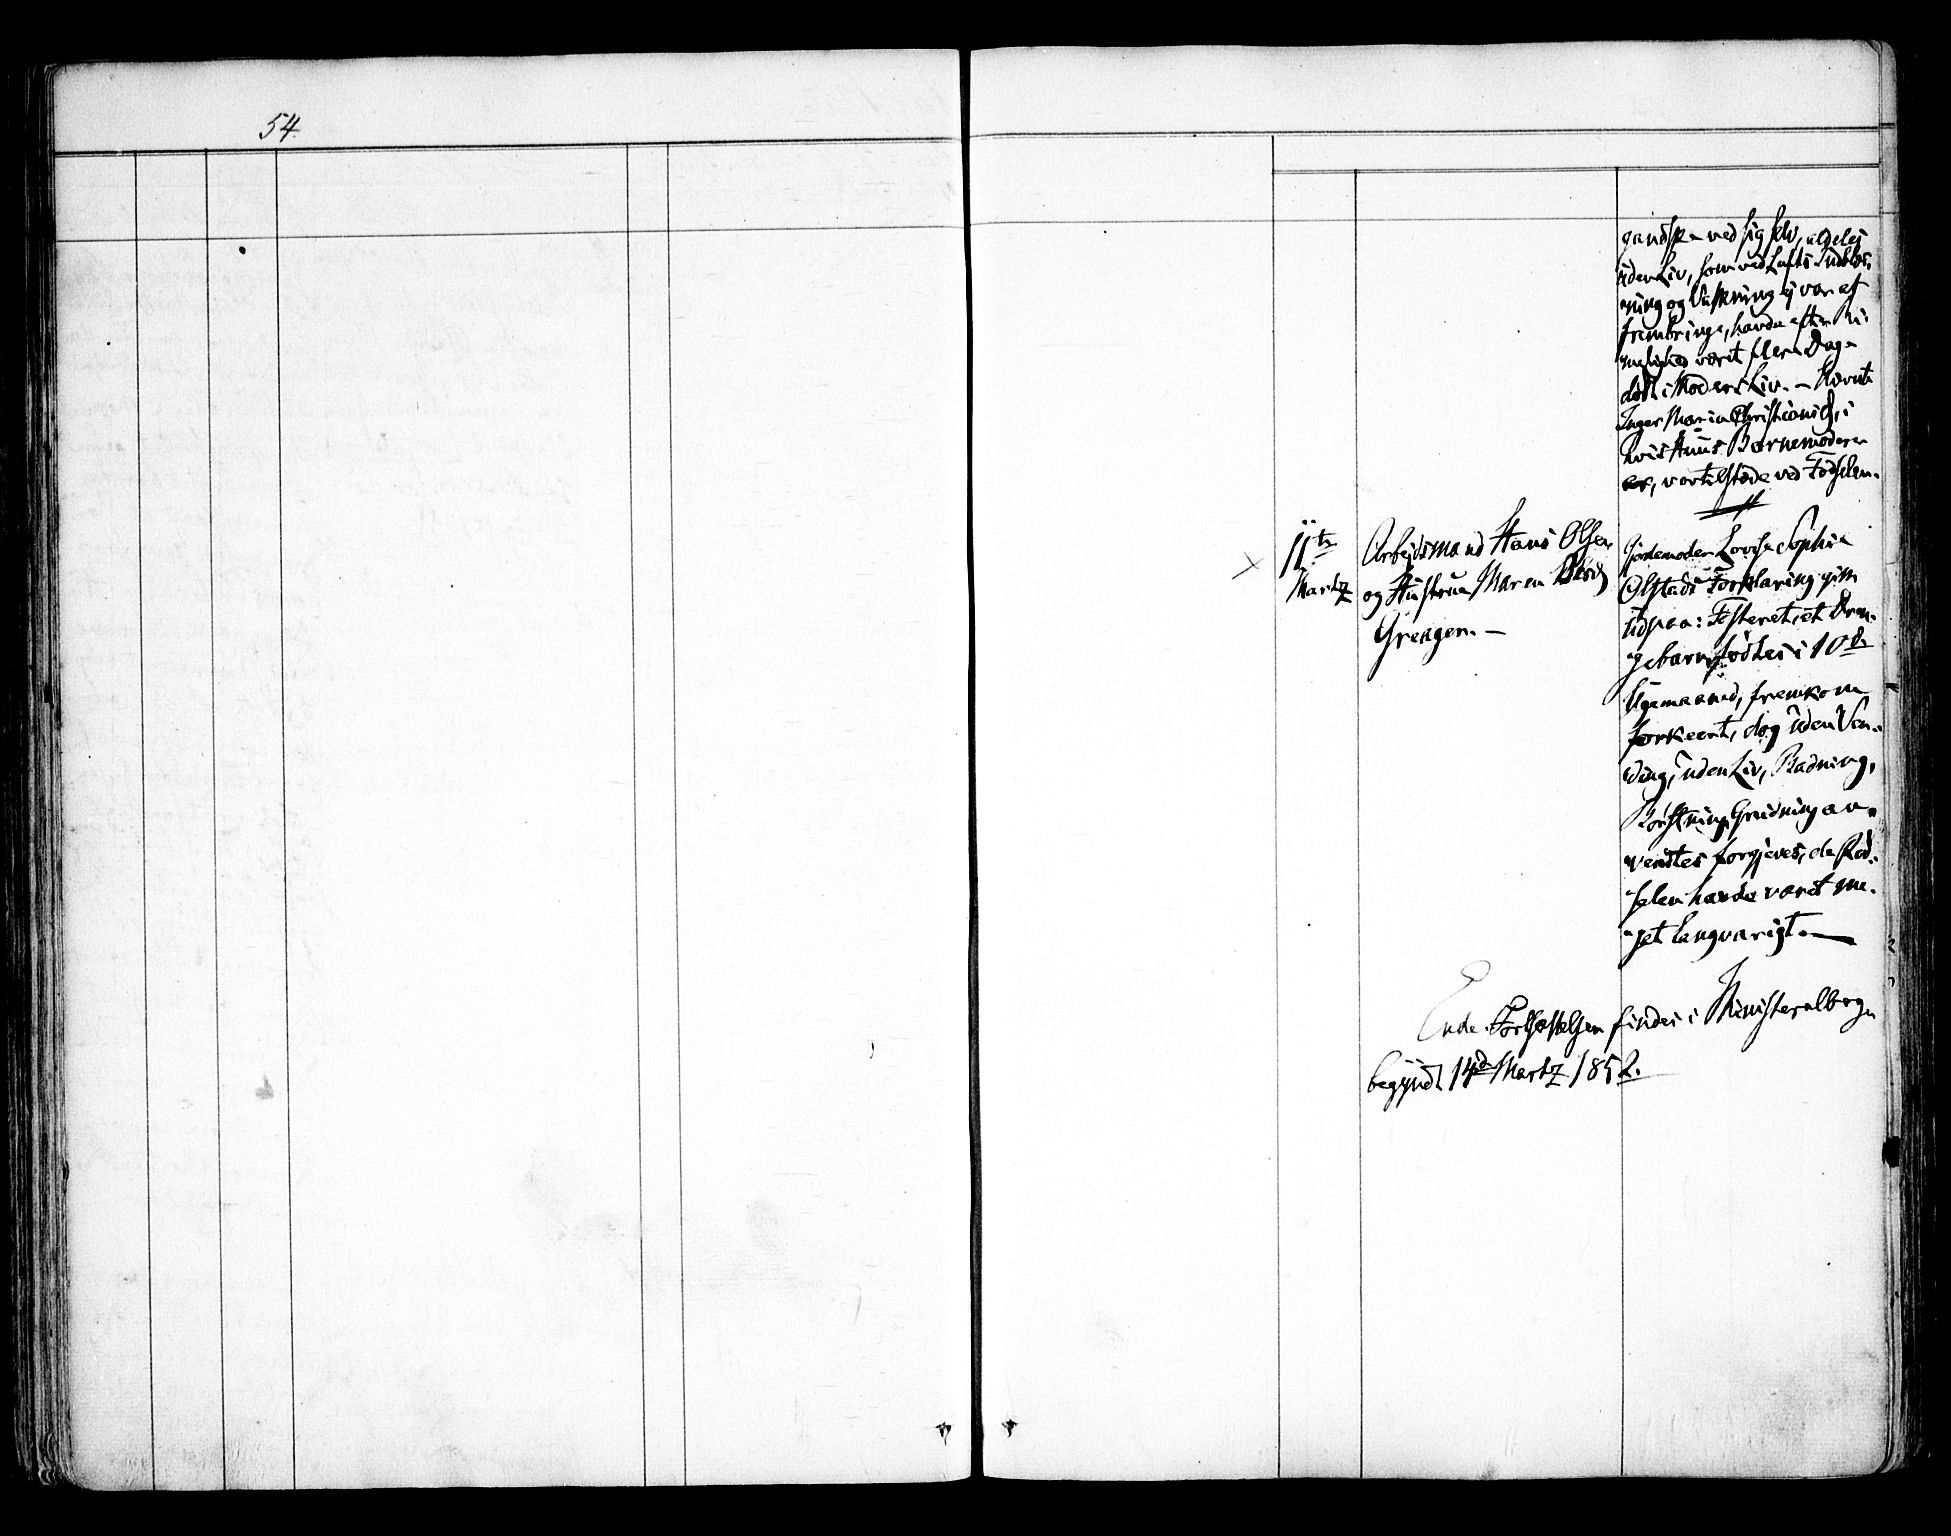 54.
gandske ved sig selv, aldeles
uden Liv, som ved Lufts Indblæs-
ning og Vaskning ej var at
frembringe, havde efter Ri-
melighed været flere Dage
død i Moders Liv. – Kone
Inger Maria Christiansd, i
hvis Huus Barnemoderen
er, var tilstæde ved Fødselen.
11te
Martz
Arbejdsmand Hans Olsen
og Hustrue Maren Larsd
Greager. –
Gjordemoder Lovise Sophie
Olstads Forklaring gik
ud paa: Fosteret, et Dren-
gebarn, fødtes i 10de
Ugemaaned, fremkom
forkeert, dog uden Ven-
ding, uden Liv, Badning,
Børstning, Gnidning an-
vendtes forgjeves, da Fød-
selen havde været me-
get langvarigt. –
Ende. Fortsættelsen findes i Ministeralbog
begyndt 14de Martz 1852.